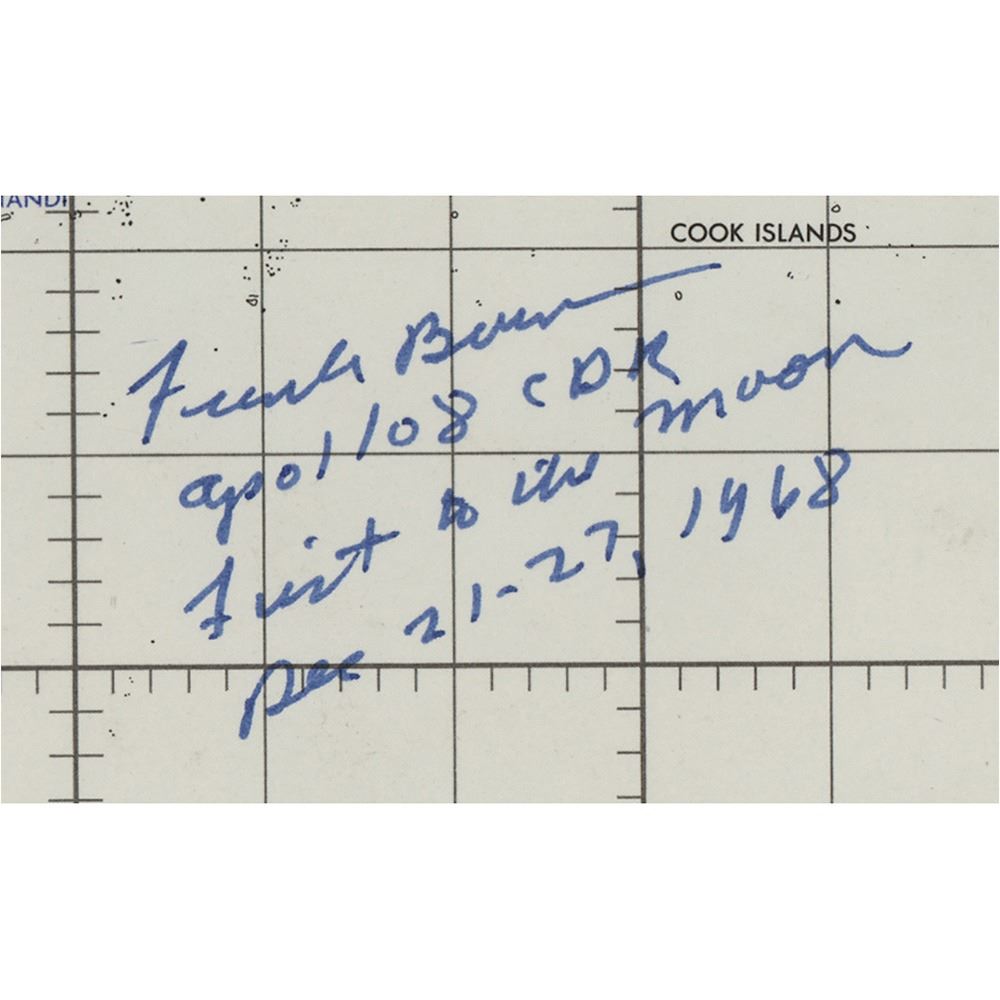 COOK ISLANDS
Frank Borman
Apollo 8 CDR
First to the Moon
Dec 21-27, 1968